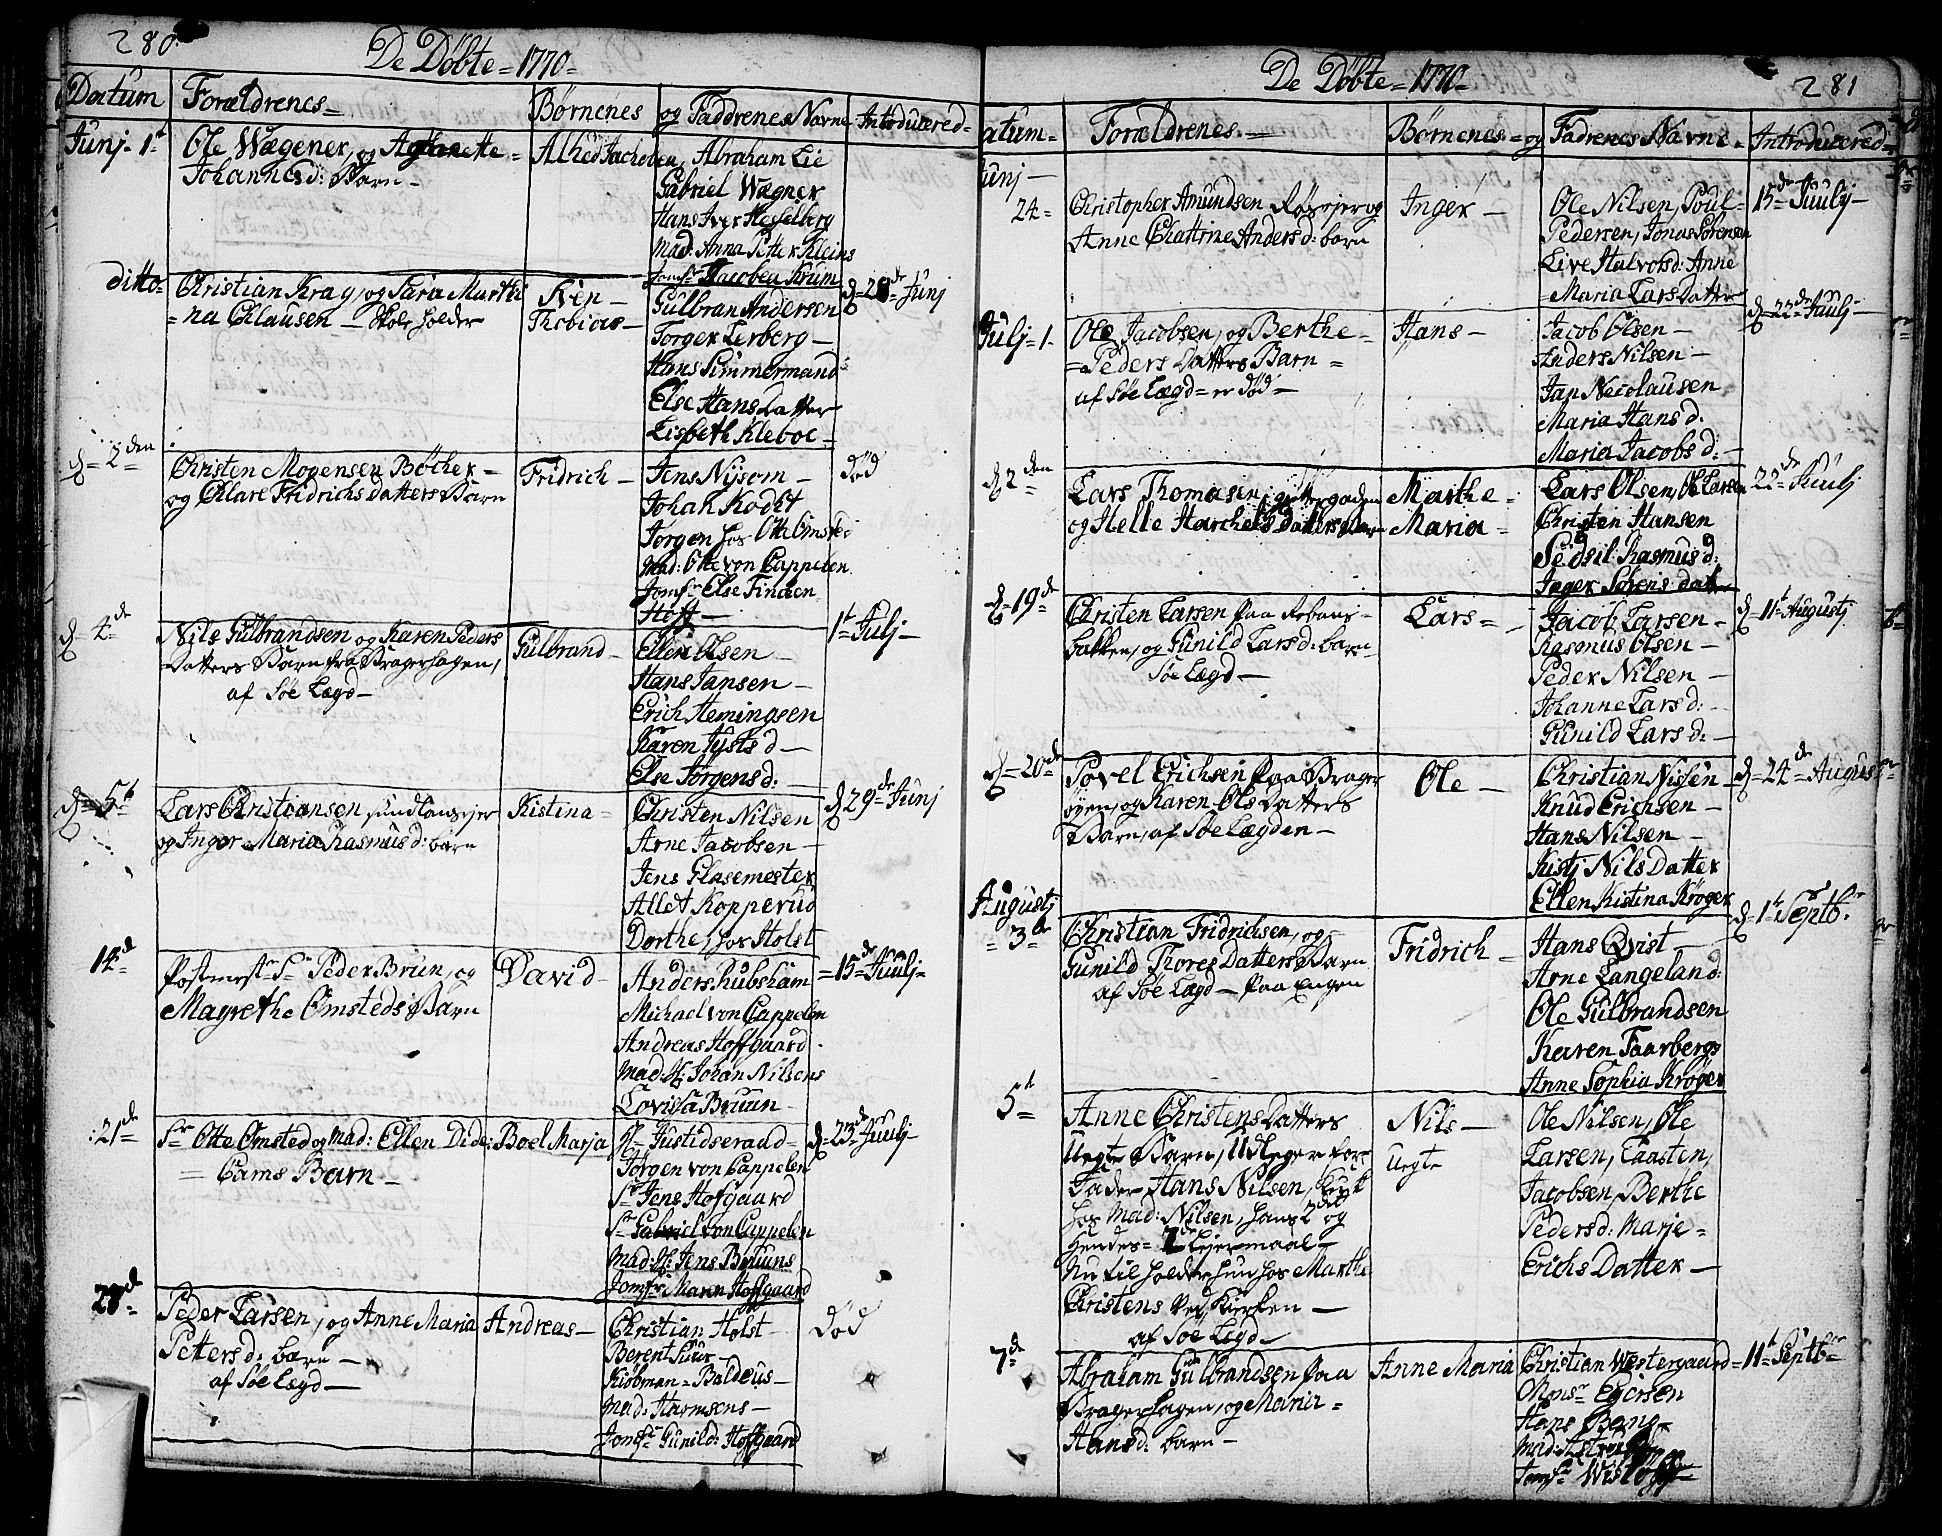 280
De Døbte = 1770 =
Datum Forældrenes = Børnenes og Faddrenes Navne Introducered =
Junj 1t
Ole Wægener, og Aghanette =
Johannesd: Barn -
Alhed Jachobea
Abraham Lie
Gabriel Wægner
Hans Iver Hesselberg
Mad: Anna Petter Kleins
Jomfr Jacobea Krum
ditto =
Christian Krag, og Sara Marthi
= na Clausen - Skoleholder
Sven -
Thobias -
Gulbran Andersen
Torger Lerberg -
Hans Simmermand
Else Hans Datter
Lisbeth Kleboe =
d = 28de Junj
d = 2den
Christen Mogensen Bøcher -
og Clare Fridrichs datters Barn
Fridrich -
Jens Nysom -
Johan Kodit
Jørgen hos Otte Omsted
Mad: Otte von Cappelen
Jomfr Else Finden
Hoff -
død
d = 4de
Nils Gulbrandsen og Karen Peders
Datters Barn fra Bragerhagen,
af Søe Lægd -
Gulbrand -
Ellen Olsen -
Hans Jansen -
Erich Hemingsen
Karen Justs d -
Else Jørgens d:
1t Julj -
d = 5t
Lars Christiansen, sundlansejer
og Inger Maria Rasmus d: barn
Kistina =
Christen Nilsen
Arne Jacobsen -
Jens Glasemester
Allet Kopperud
Dorthe, hos Holst
d 29de Junj
14d
Postmestr Sr Peder Brun, og
Magrethe Omsteds Barn
David -
Anders Kubsham
Michael von Cappelen
Andreas Hoffgaard
Mad: H: Johan Nilsens
Lovisa Bruun -
= 15de Juulj =
21de =
Sr Otte Omsted og Mad: Ellen Dide:
= Cams Barn -
Boel Marja
Hr Justidseraad =
Jørgen von Cappelen
Sr Jens Hofgaard
Sr Gabriel von Cappelen
Mad: H: Jens Bruuns
Jomfr: Maren Hoffgaard
d = 23de Juulj =
28de =
Peder Larsen, og Anne Maria
Petters d: barn -
af Søe Lægd -
Andreas -
Christian Holst
Berent Suur -
Kiøbman = Baldeus -
Mad: Harmsens -
Jomfr Gunild: Hoffgaard
død
281
De Døbte = 1770 =
atum = Forældrenes. - Børnenes = og Fadrenes Navne - Introducered =
Junj -
24 =
Christopher Amundsen Røsøjer og
Anne Chattrine Anders d: barn
Inger -
Ole Nilsen, Poul =
Pedersen, Jonas Sørensen
Live Halvorsd: Anne
= Maria Lars Datter
15de Juulj -
Julj = 1 =
Ole Jacobsen, og Berthe =
= Peders Datters Barn =
af Søe Lægd = er død -
Hans -
Jacob Olsen -
Anders Nilsen -
Jan Necolausen
Maria Hans d:
Maria Jacobs d: -
d = 22de Juulj -
d 2den =
Lars Thomasen, i gittergaden
og Helle Harchels Datters Barn
Marthe =
Maria =
Lars Olsen, Ole Larsen
Christen Hansen
Sedsil Rasmus d:
Inger Sørens datter
22de Juulj
d = 19de
Christen Larsen paa Rebans =
bakken, og Gunild Lars d: barn
Søe Lægd -
Lars = -
Jacob Larsen -
Rasmus Olsen -
Peder Nilsen -
Johanne Lars d: -
Gunild Lars d: -
d = 11t Augustj
d = 20de
Povel Erichsen paa Brager
øyen, og Karen Ols Datters
Barn, af Søe Lægden -
Ole -
Christian Nislen
Knud Erichsen -
Hans Nilsen -
Kistj Nils Datter
Ellen Kistina Krøger
d = 24de August
Augustj
= 3de
Christian Fridrichsen, og -
Gunild Thores Datters Barn
af Søe Lægd - paa Engen
Fridrich -
Hans Qvist -
Arne Langeland:
Ole Gulbrandsen
Karen Faarbergs
Anne Sophia Krøger
d = 1t Septbr
5t =
Anne Christens Datters
Uegte Barn, Udleger for =
Fader, Hans Nilsen,
hos Mad: Nilsen, hans 2det og
Hendes = 2de Lejermaal -
Nu tilholder hun hos Marthe
Christens ved Kierken -
af Søe Legd -
Nils -
Uegte
Ole Nilsen, Ole
Larsen, Taasten,
Jacobsen, Berthe
Peders d: Marje =
Erichs Datter -
7de
Abraham Gulbrandsen paa
Bragerhagen, og Maria =
Hans d: barn -
Anne Maria
Christian Westergaard =
Monsr Egersen
Hans Bang =
Jomfr
11t Septbr